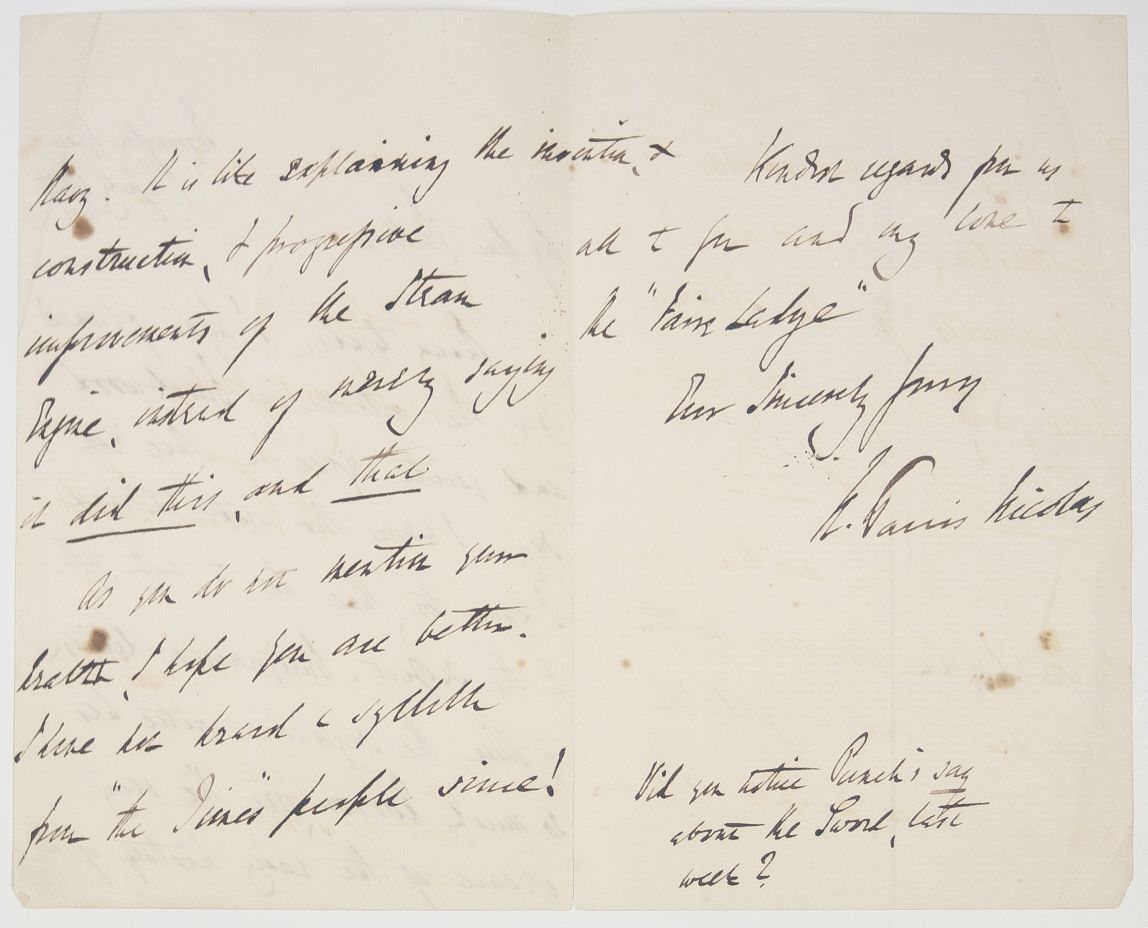 Navy. It is like explaining the invention, &
construction, & progressive
improvements of the Steam
Engine, instead of merely saying
it did this, and that.
As you do not mention your
health, I hope you are better.
I have not heard a syllable
from "the Times" people since!
Kindest regards from us
all to you and my love to
the "Faire Ladye"
Ever Sincerely yours
N. Harris Nicolas
Did you notice Punch's say
about the Sword, last
week?